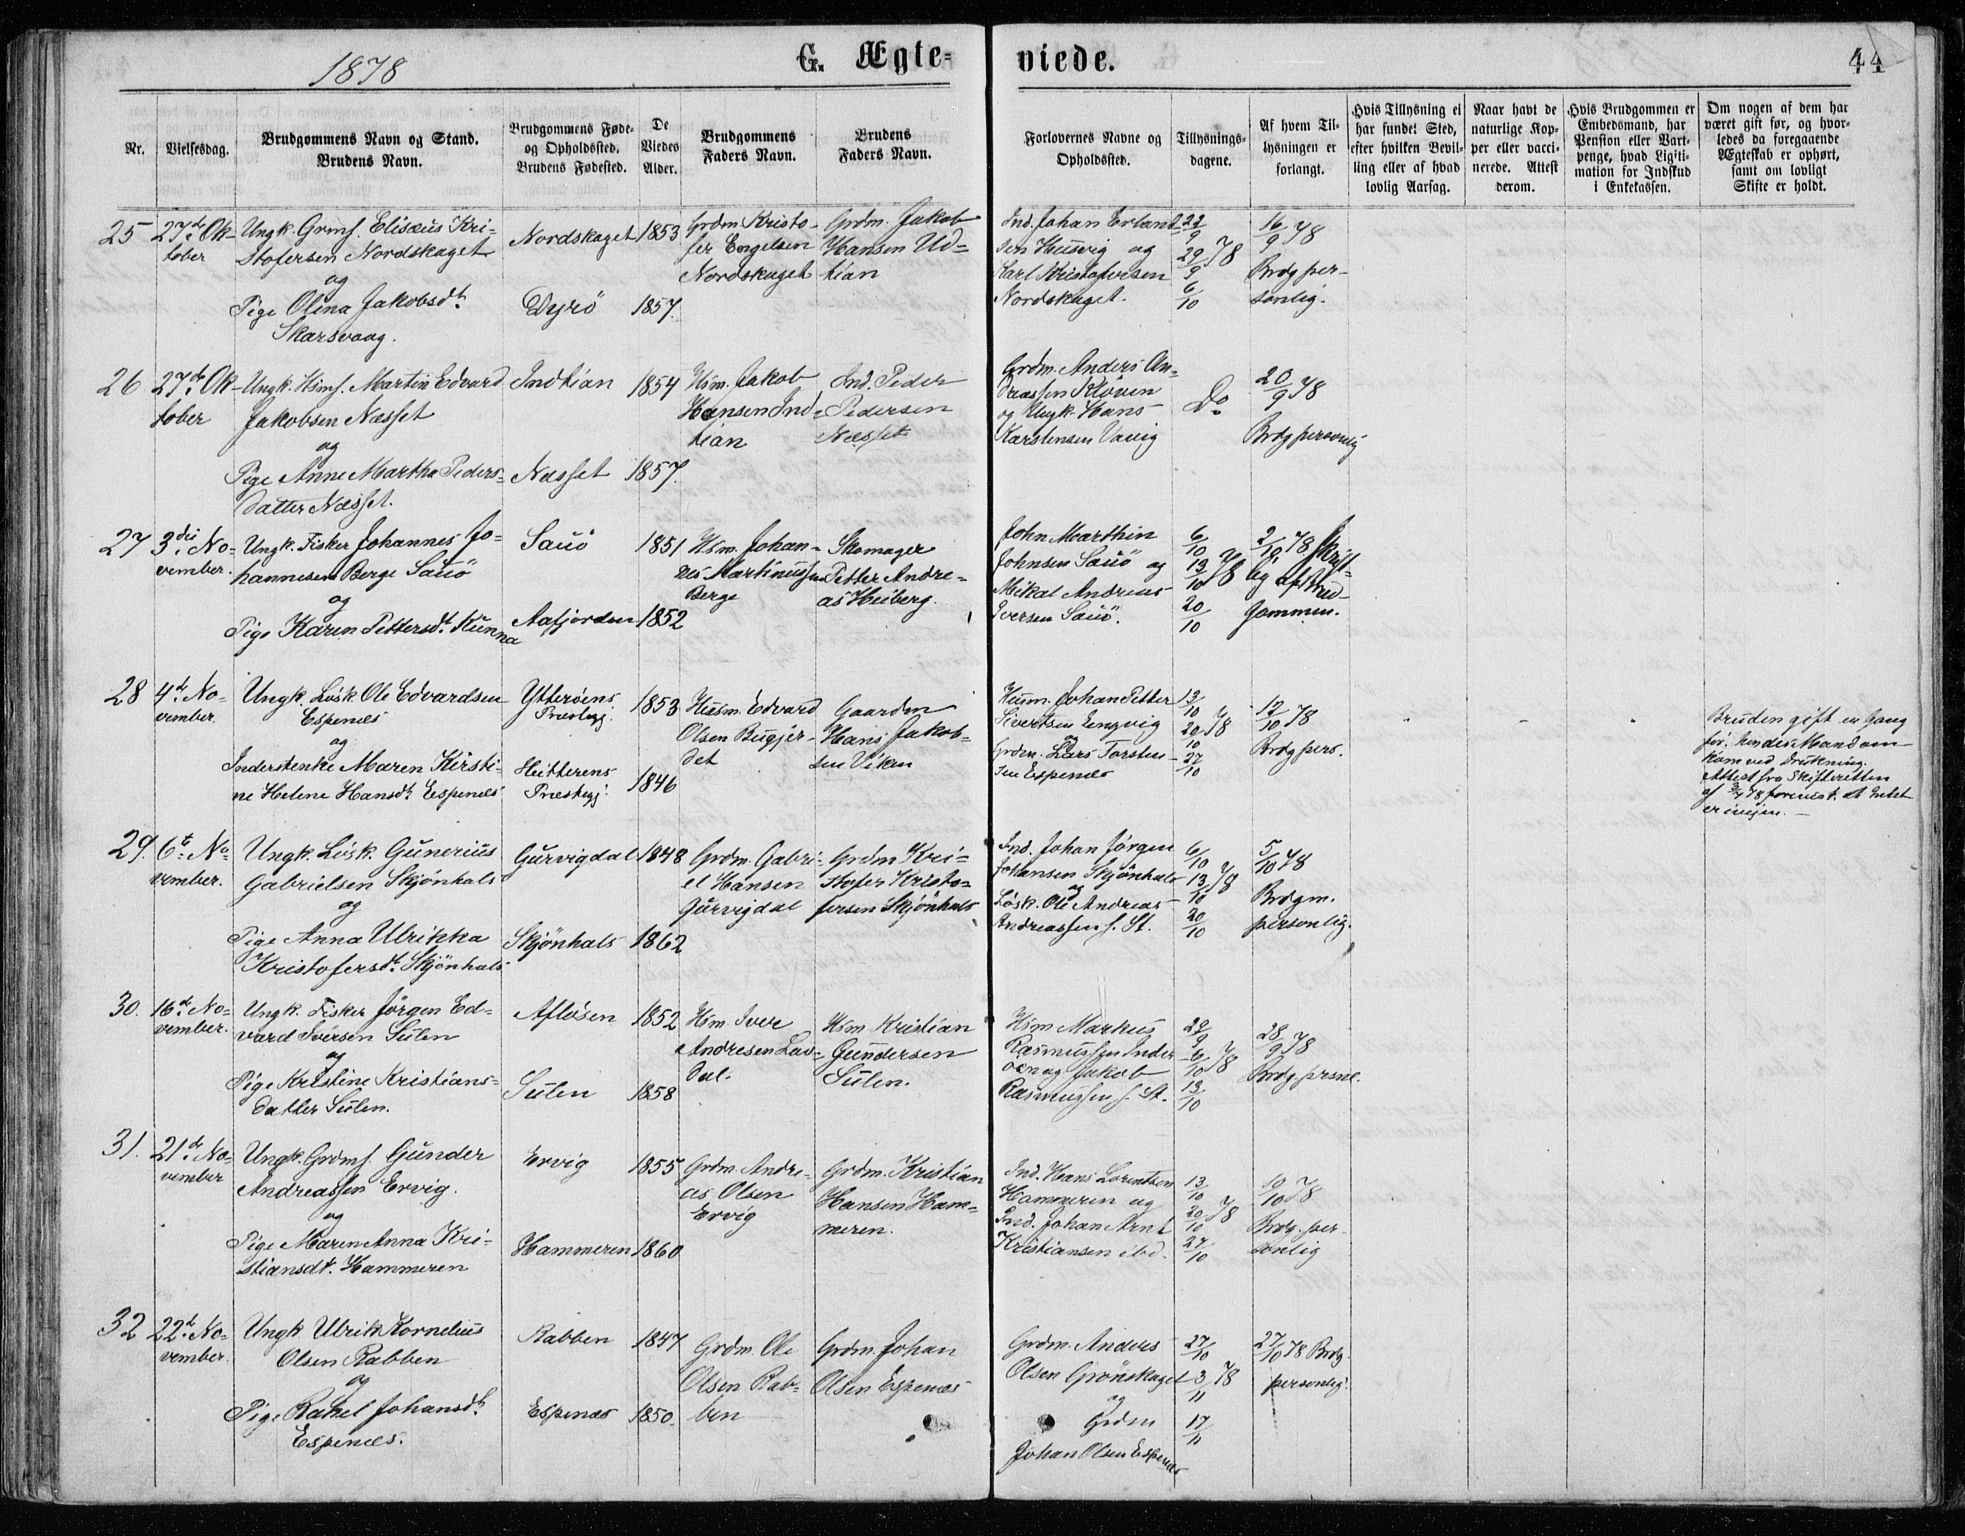 1878
G. Ægte-
viede.
44
Nr.
Vielsesdag.
Brudgommens Navn og Stand.
Brudens Navn.
Brudgommens Føde-
og Opholdssted.
Brudens Fødested.
De
Viedes
Alder.
Brudgommens
Faders Navn.
Brudens
Faders Navn.
Forlovernes Navne og
Opholdssted.
Tillysnings-
dagene.
Af hvem Til-
lysningen er
forlangt.
Hvis Tillysning ei
har fundet Sted,
efter hvilken Bevil-
ling eller af hvad
lovlig Aarsag.
Naar havt de
naturlige Kop-
per eller vacci-
nerede. Attest
derom.
Hvis Brudgommen er
Embedsmand, har
Pension eller Vart-
penge, hvad Ligiti-
mation for Indskud
i Enkekassen.
Om nogen af dem har
været gift før, og hvor-
ledes da foregaaende
Ægteskab er ophørt,
samt om lovligt
Skifte er holdt.
25
27de Ok-
tober
Ungk. Grmf. Elisæus Kri-
stofersen Nordskaget
og
Pige Olina Jakobsdt.
Skarsvaag.
Nordskaget
Dyrö
1853
1857.
Grdm Kristo-
fer Engelsen
Nordskaget
Grdm. Jakob
Hansen Ud-
tian
Ind. Johan Erland-
sen Husvig og
Karl Kristofersen
Nordskaget.
22/9
29/9 78
6/10
16/9 78
Brdg per-
sonlig.
26
27de Ok-
tober
Ungk. Hsmf. Martin Edvard
Jakobsen Næsset
og
Pige Anne Martha Peders-
datter Næsset.
Indtian
Næsset
1854
1857.
Hsm. Jakob
Hansen Ind-
tian
Ind. Peder
Pedersen
Næsset
Grdm. Anders An-
dreassen Kløven
og Ungk. Hans
Karstensen Vavig
Do
20/9 78
Brdg personlig
27
3die No-
vember.
Ungk. Fisker Johannes Jo-
hannesen Berge Sauö
og
Pige Karen Pettersdt. Kunna
Sauö
Aafjorden
1851
1852
Hsm. Johan-
nes Martinussen
Berge
Skomager
Petter Andre-
as Heiberg.
John Marthin
Johnsen Sauö og
Mikal Andreas
Iversen Sauö.
6/10
13/10 78
20/10
2/10 78 Skrift-
lig af Brud-
gommen.
28
4de No-
vember.
Ungk. Løsk. Ole Edvardsen
Espenes
og
Inderstenke Maren Kirsti-
ne Helene Hansdt. Espenes
Ytterøens
Præstegj.
Hitterens
Præstegj.
1853
1846
Husm. Edvard
Olsen Bugjer-
det
Gaardm
Hans Jakob-
sen Viken
Husm. Johan Petter
Sivertsen Eengvig
og
Grdm. Lars Torsten-
sen Espenes
13/10
20/10 78
27/10
12/10 78
Brdg pers.
Bruden gift en Gang
før. hendes Mand om-
kom ved Drukning.
Attest fra Skifteretten
af 78 forevist. at Intet
er ivejen.
29.
6te No-
vember.
Ungk. Løsk. Gunerius
Gabrielsen Skjønhals
og
Pige Anna Ulrikka
Kristofersdt. Skjönhals
Gurvigdal
Skjönhals
1848
1862
Grdm. Gabri-
el Hansen
Gurvigdal
Grdm Kri-
stofer Kristo-
fersen Skjönhals
Ind. Johan Jørgen
Johansen Skjönhals
og
Løsk. Ole Andreas
Andreassen s. St.
6/10
13/10 78
20/10
5/10 78
Brdgm.
personlig.
30.
16de No-
vember.
Ungk. Fisker Jörgen Ed-
vard Iversen Sulen
og
Pige Kristine Kristians-
datter Sulen.
Afløsen
Sulen
1852
1858
Hsm. Iver
Andresen Lav-
dal.
Hsm Kristian
Gundersen
Sulen.
Hsm Markus
Rasmussen Inder-
oen og Jakob
Rasmussen s. St.
29/9
6/10 78
13/10
28/9 78
Brdg persnl.
31.
21de No-
vember
Ungk. Grdmf. Gunder
Andreassen Ervig.
og
Pige Maren Anna Kri-
stiansdt. Hammeren
Ervig
Hammeren
1855
1860
Grdm. Andre-
as Olsen
Ervig
Grdm. Kristian
Hansen Ham-
meren.
Ind. Hans Lorentsen
Hammeren og
Ind. Johan Arnt
Kristiansen ibd.
13/10
20/10 78
27/10
10/10 78
Brdg. per-
sonlig
32
22de No-
vember.
Ungk Ulrik Kornelius
Olsen Rabben
og
Pige Rakel Johansdt.
Espenes.
Rabben
Espenes
1847
1850.
Grdm. Ole
Olsen Rab-
ben
Grdm. Johan
Olsen Espenes
Grdm. Anders
Olsen Grönskaget
og
Grdm
Johan Olsen Espenes
27/10
3/11 78
17/11
27/10 78 Brdg.
personlig.